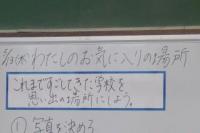 わたしのお気に入りの場所
これまですごしてきた学校を
思い出の場所にしよう。
① 写真を決める